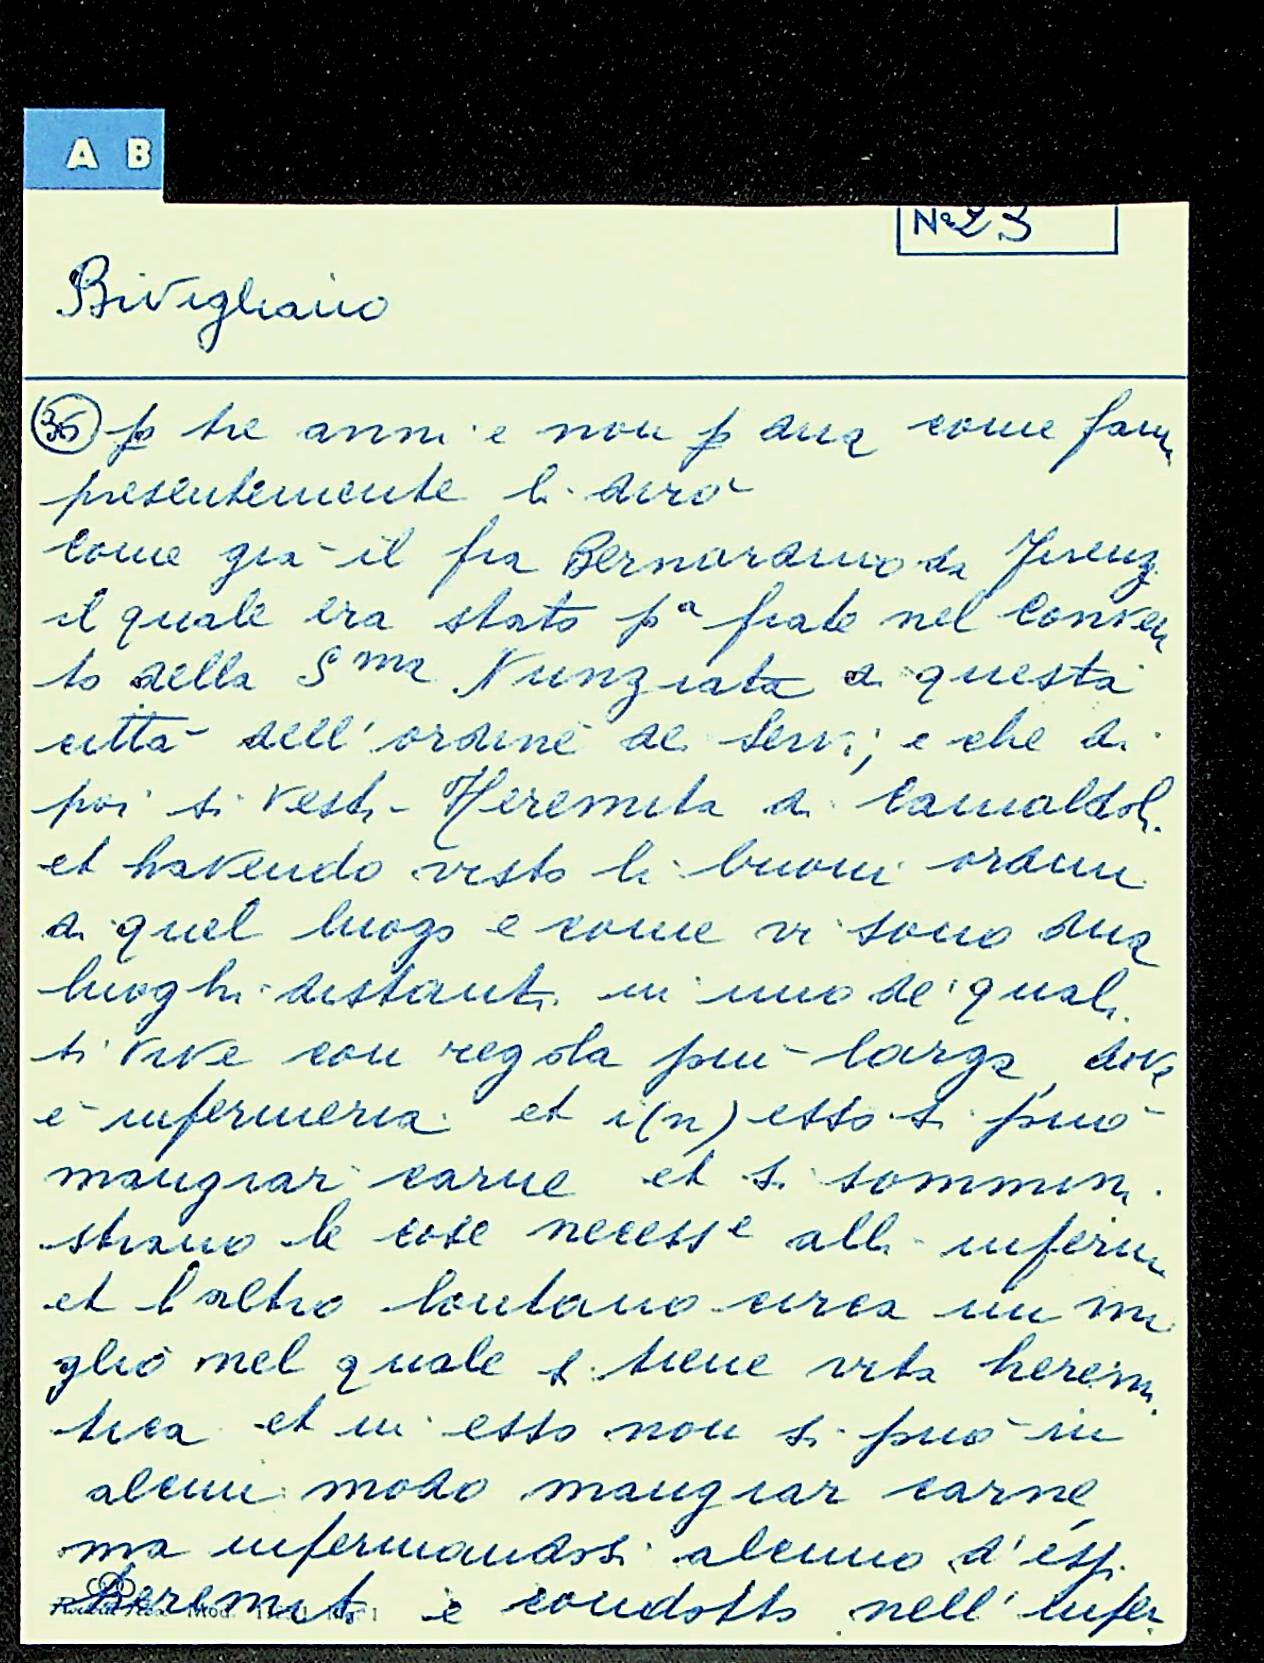 A B
No 23
Bivigliano
(36) p tre anni e non p dua come fann
presentemente li dirò
come già il fra Bernardino da Firenz
il quale era stato pª frate nel Conven
to della Sma Nunziata di questa
città dell'ordine de Servi; e che di
poi si vestì Heremita di Camaldoli
et havendo visto li buoni ordini
di quel luogo e come vi sono dua
luoghi distanti in uno de' quali
si vive con regola più larga, dove
è infermeria et i(n) esso si può
mangiar carne et si sommini
strano le cose necesse alli infermi
et l'altro lontano circa un mi
glio nel quale si tiene vita heremi
tica et in esso non si può in
alcun modo mangiar carne,
ma infermandosi alcuno d'essi
Heremiti è condotto nell'infer